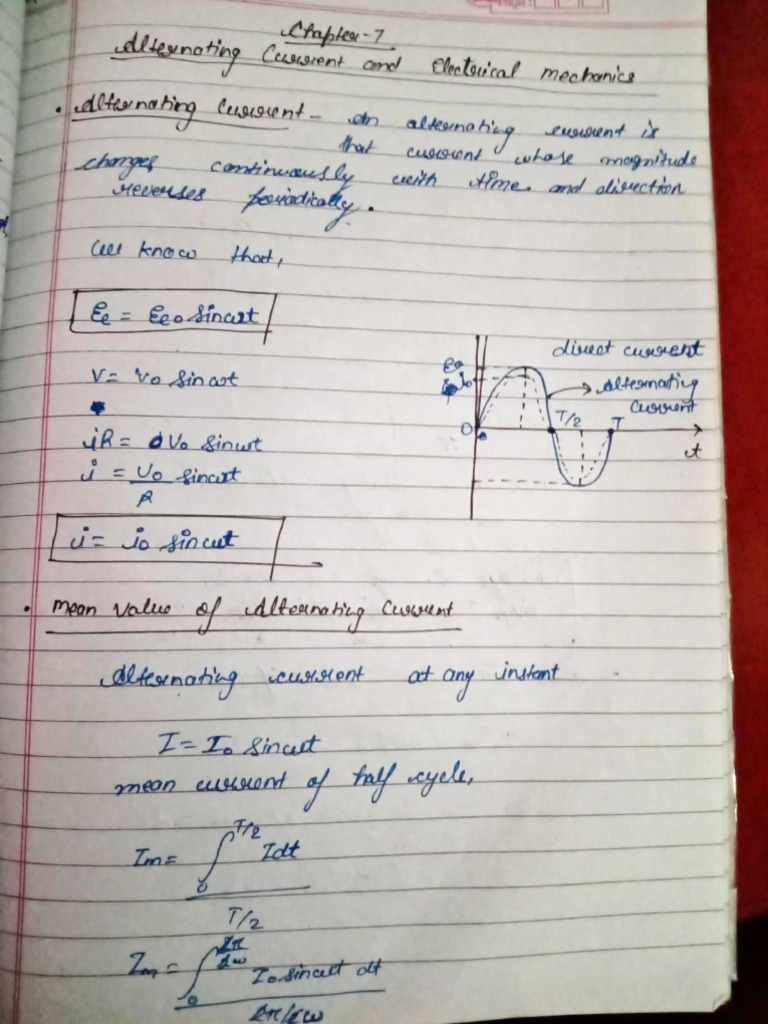 Chapter-7
Alternating Current and Electrical mechanics
• Alternating Current - An alternating current is
that current whose magnitude
changes continuously with time and direction
reverses periodically.
We know that,
Ee = Eeo sinωt
V = Vo sinωt
iR = Vo sinωt
i = Vo/R sinωt
i = io sinωt
direct current
Alternating
Current
Eo
io
O
T/2
T
t
• Mean Value of Alternating Current
Alternating current at any instant
I = Io sinωt
mean current of half cycle,
Im = ∫₀^T/2 Idt
T/2
Im = ∫₀^2π/2ω Io sinωt dt
2π/2ω